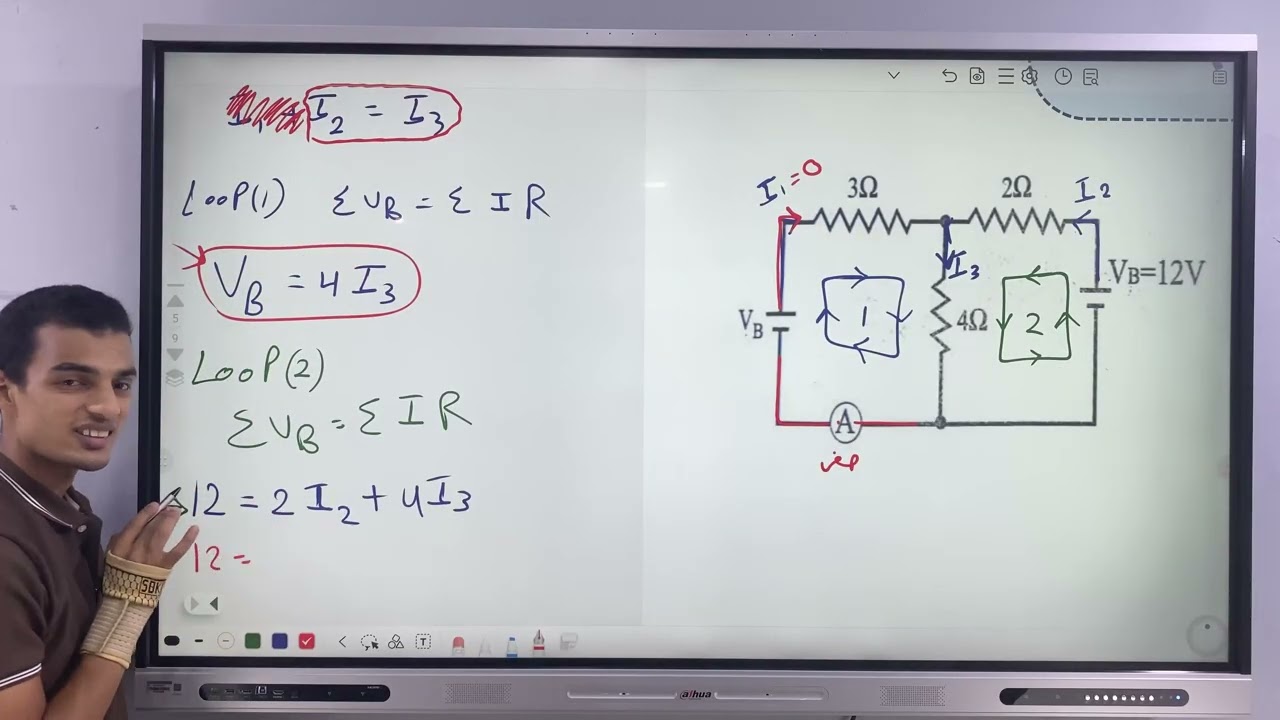 I₂ = I₃
LOOP(1) Σ VB = Σ I R
VB = 4 I₃
LOOP(2)
Σ VB = Σ I R
12 = 2 I₂ + 4 I₃
12 =
5
9
I₁ = 0
3Ω
2Ω
I2
I₃
VB=12V
VB
1
4Ω
2
A
SBK
T
alhua